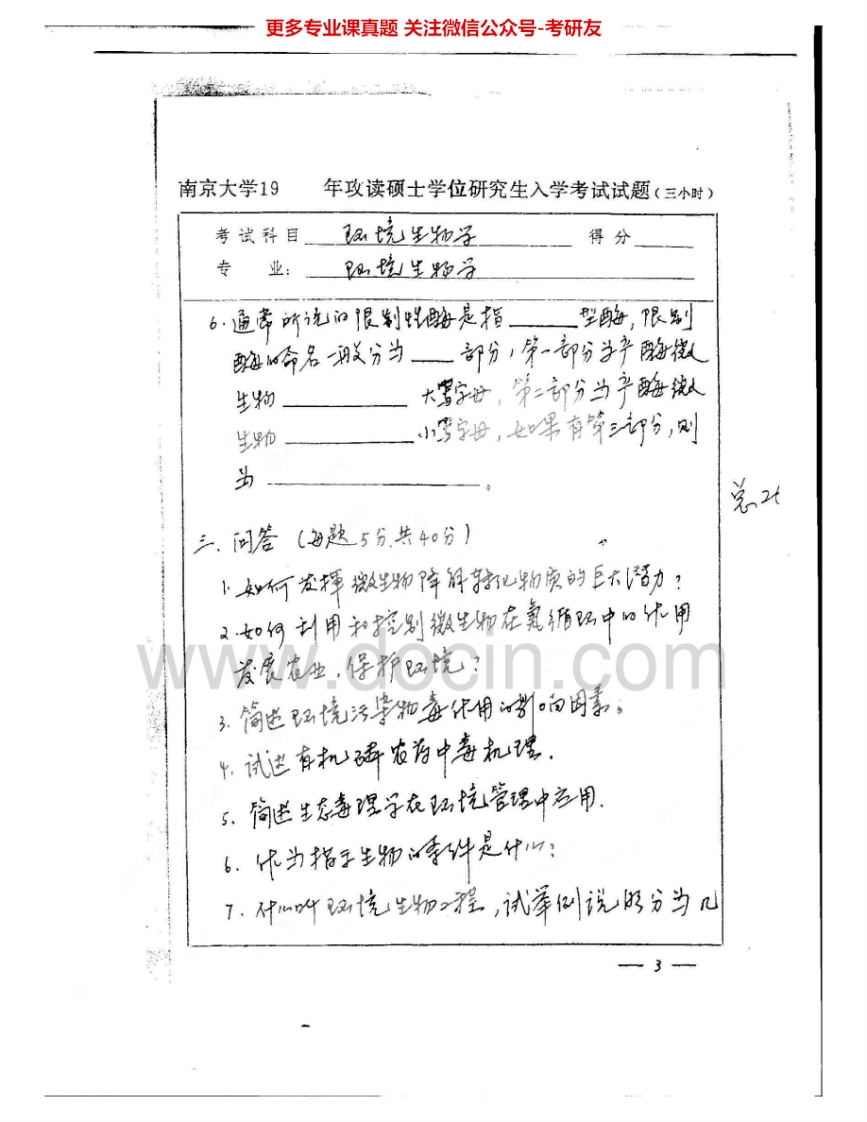 更多专业课真题 关注微信公众号-考研友
南京大学19 年攻读硕士学位研究生入学考试试题(三小时)
考试科目 环境生物学 得分
专 业: 环境生物学
6.通常所说的限制性酶是指______型酶,限制
酶的命名一般分为____部分,第一部分为产酶微
生物____________大写字母,第二部分为产酶微
生物____________小写字母,如果有第三部分,则
为____________________。
总2t
三.问答(每题5分.共40分)
1.如何发挥微生物降解转化物质的巨大潜力?
2.如何利用和控制微生物在氮循环中的作用
发展农业,保护环境?
www.docin.com
3.简述环境污染物毒作用的影响因素。
4.试述有机磷农药中毒机理.
5.简述生态毒理学在环境管理中应用.
6.作为指示生物的条件是什么?
7.什么叫环境生物工程,试举例说明分为几
— 3 —